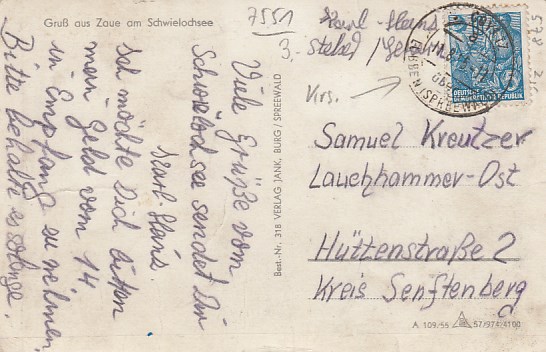 Gruß aus Zaue am Schwielochsee
7551
3.
Karl-Heinz
Viele Grüße vom
Schwielochsee sendet Dir
Karl-Heinz.
Ich möchte Dich bitten
mein Geld vom 14
in Empfang zu nehmen
Bitte behalte es solange.
Best.-Nr. 318 VERLAG JANK, BURG / SPREEWALD
DEUTSCHE
DEMOKRATISCHE REPUBLIK
(SPREEWALD)
Krs.
Samuel Kreutzer
Lauchhammer-Ost
Hüttenstraße 2
Kreis Senftenberg
A 109/55 57/974 4100
875